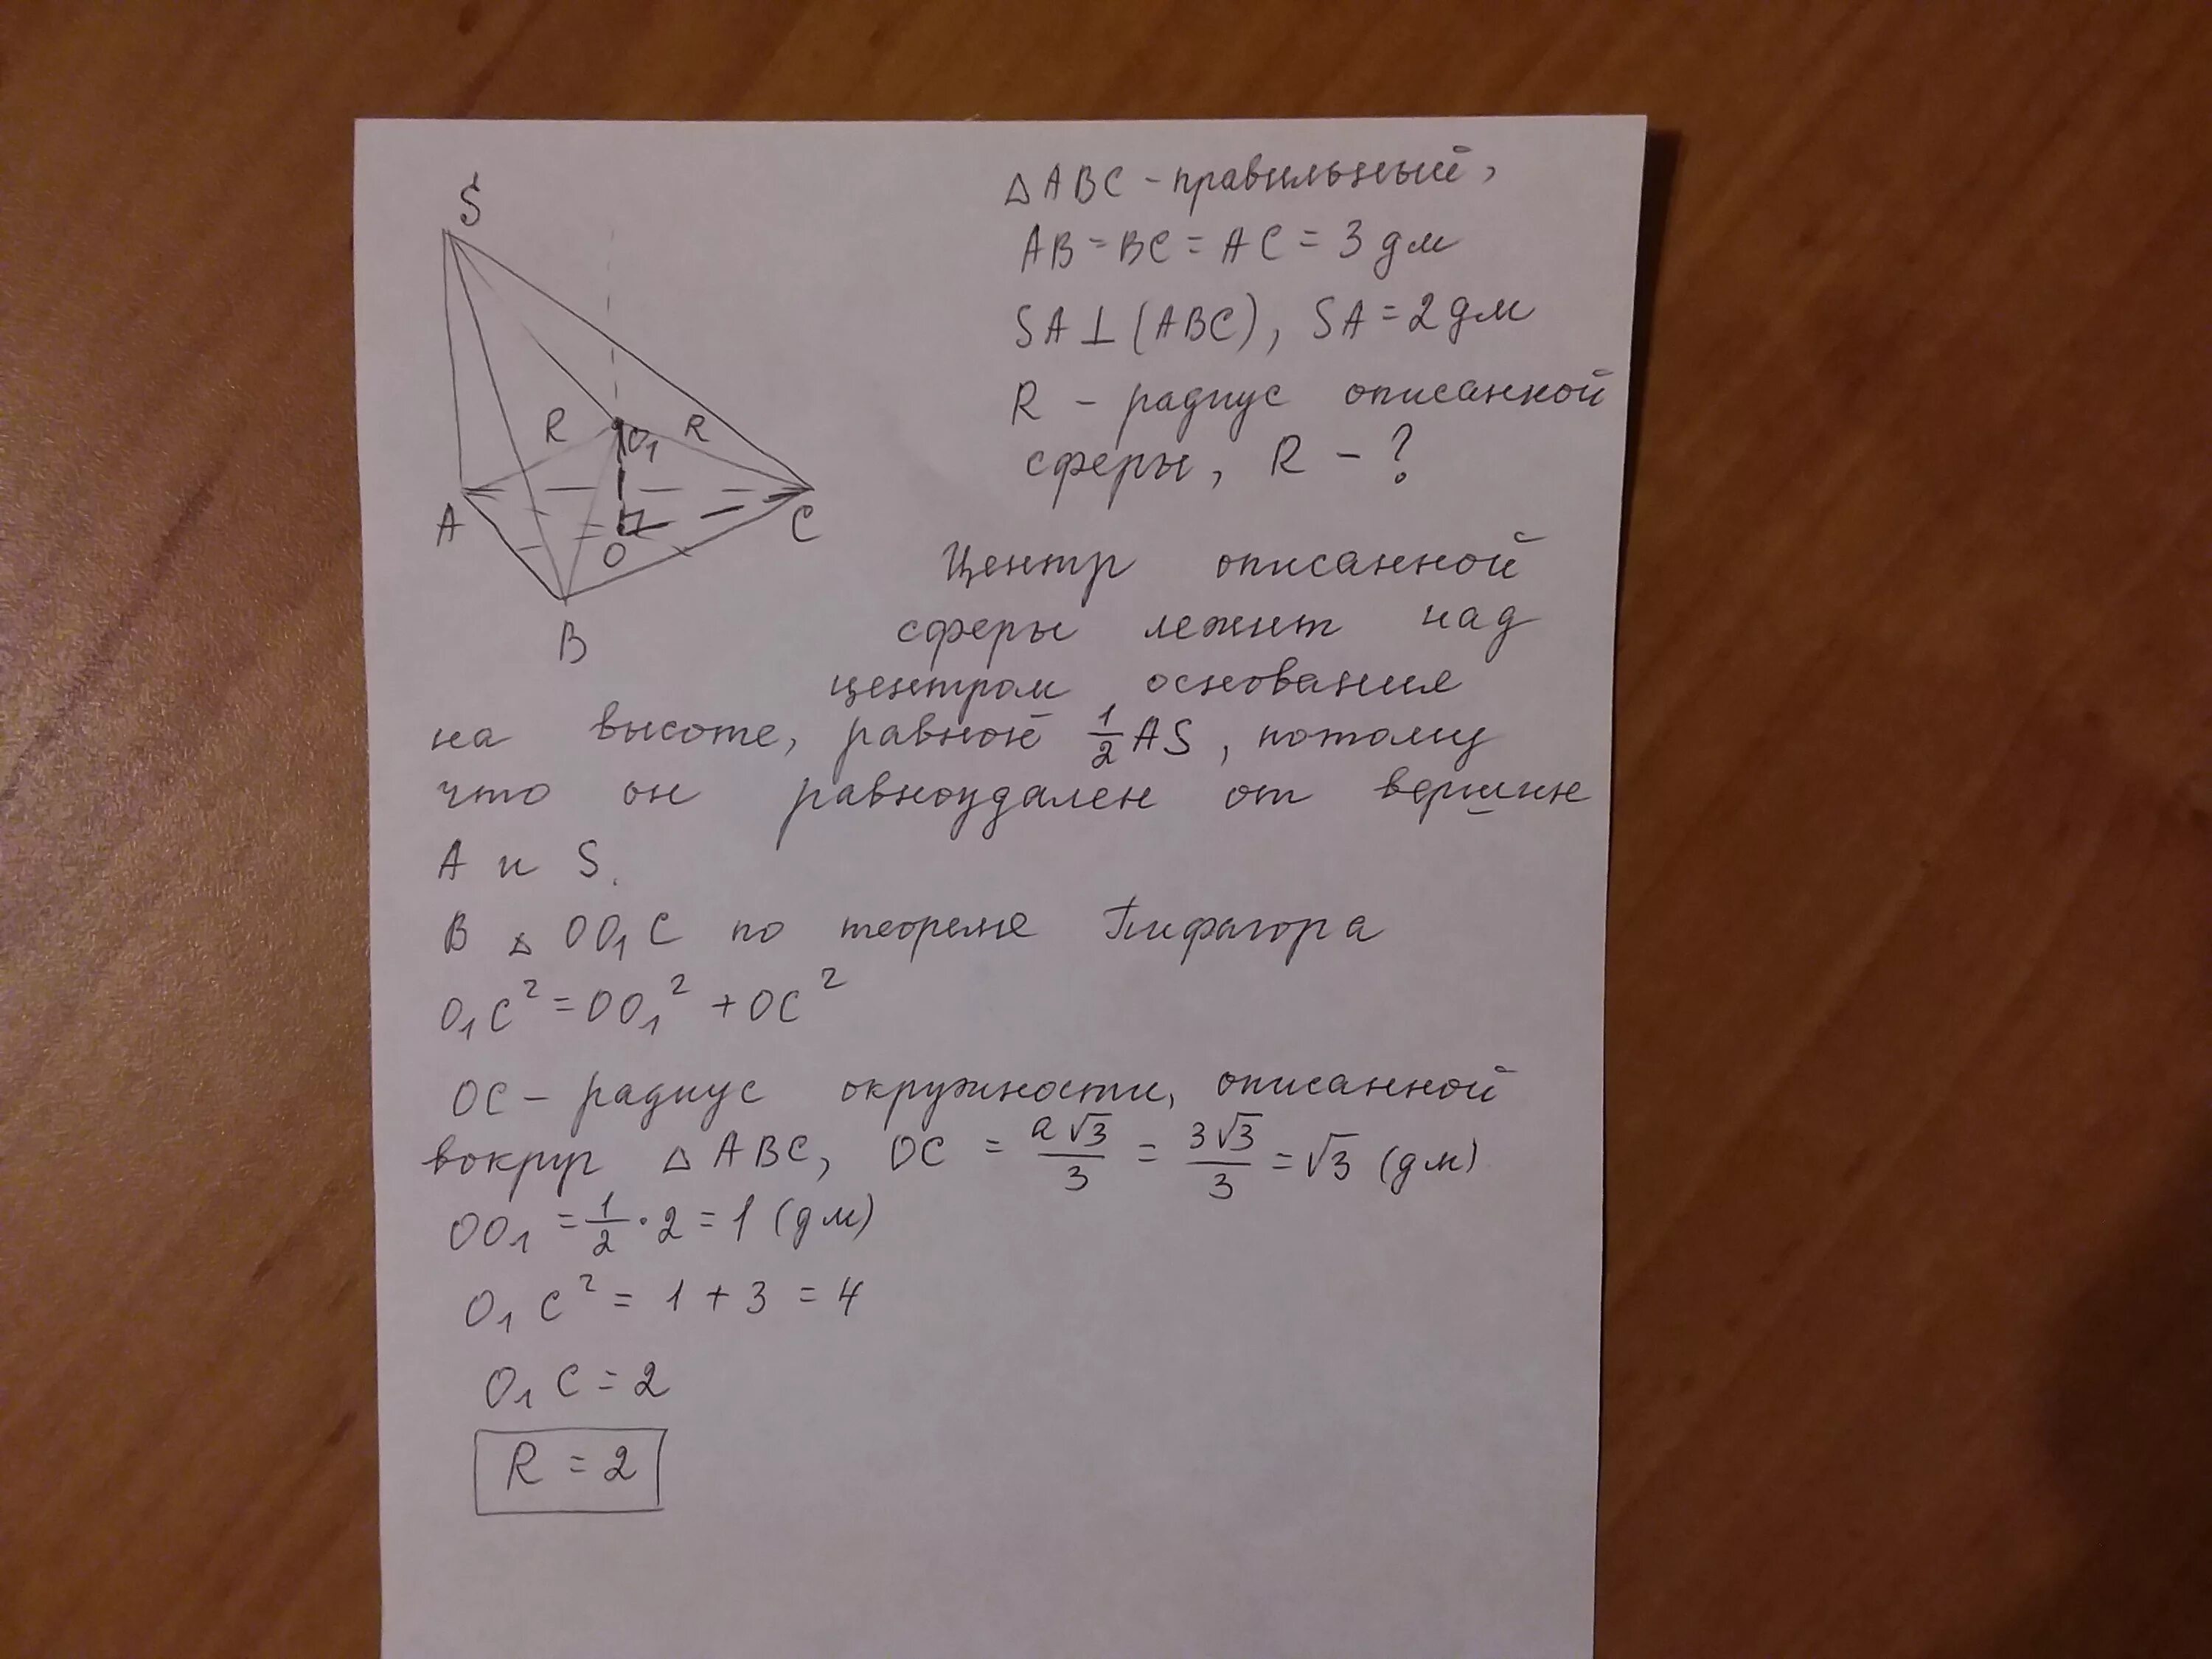 △ABC - правильный,
AB = BC = AC = 3 дм
SA ⊥ (ABC), SA = 2 дм
R - радиус описанной
сферы, R - ?
S
R
O₁
R
A
O
C
B
Центр описанной
сферы лежит над
центром основания
на высоте, равной 1/2 AS, потому
что он равноудален от вершин
A и S.
В △ OO₁C по теореме Пифагора
O₁C² = OO₁² + OC²
OC - радиус окружности, описанной
вокруг △ABC, OC = a√3/3 = 3√3/3 = √3 (дм)
OO₁ = 1/2 · 2 = 1 (дм)
O₁C² = 1 + 3 = 4
O₁C = 2
R = 2